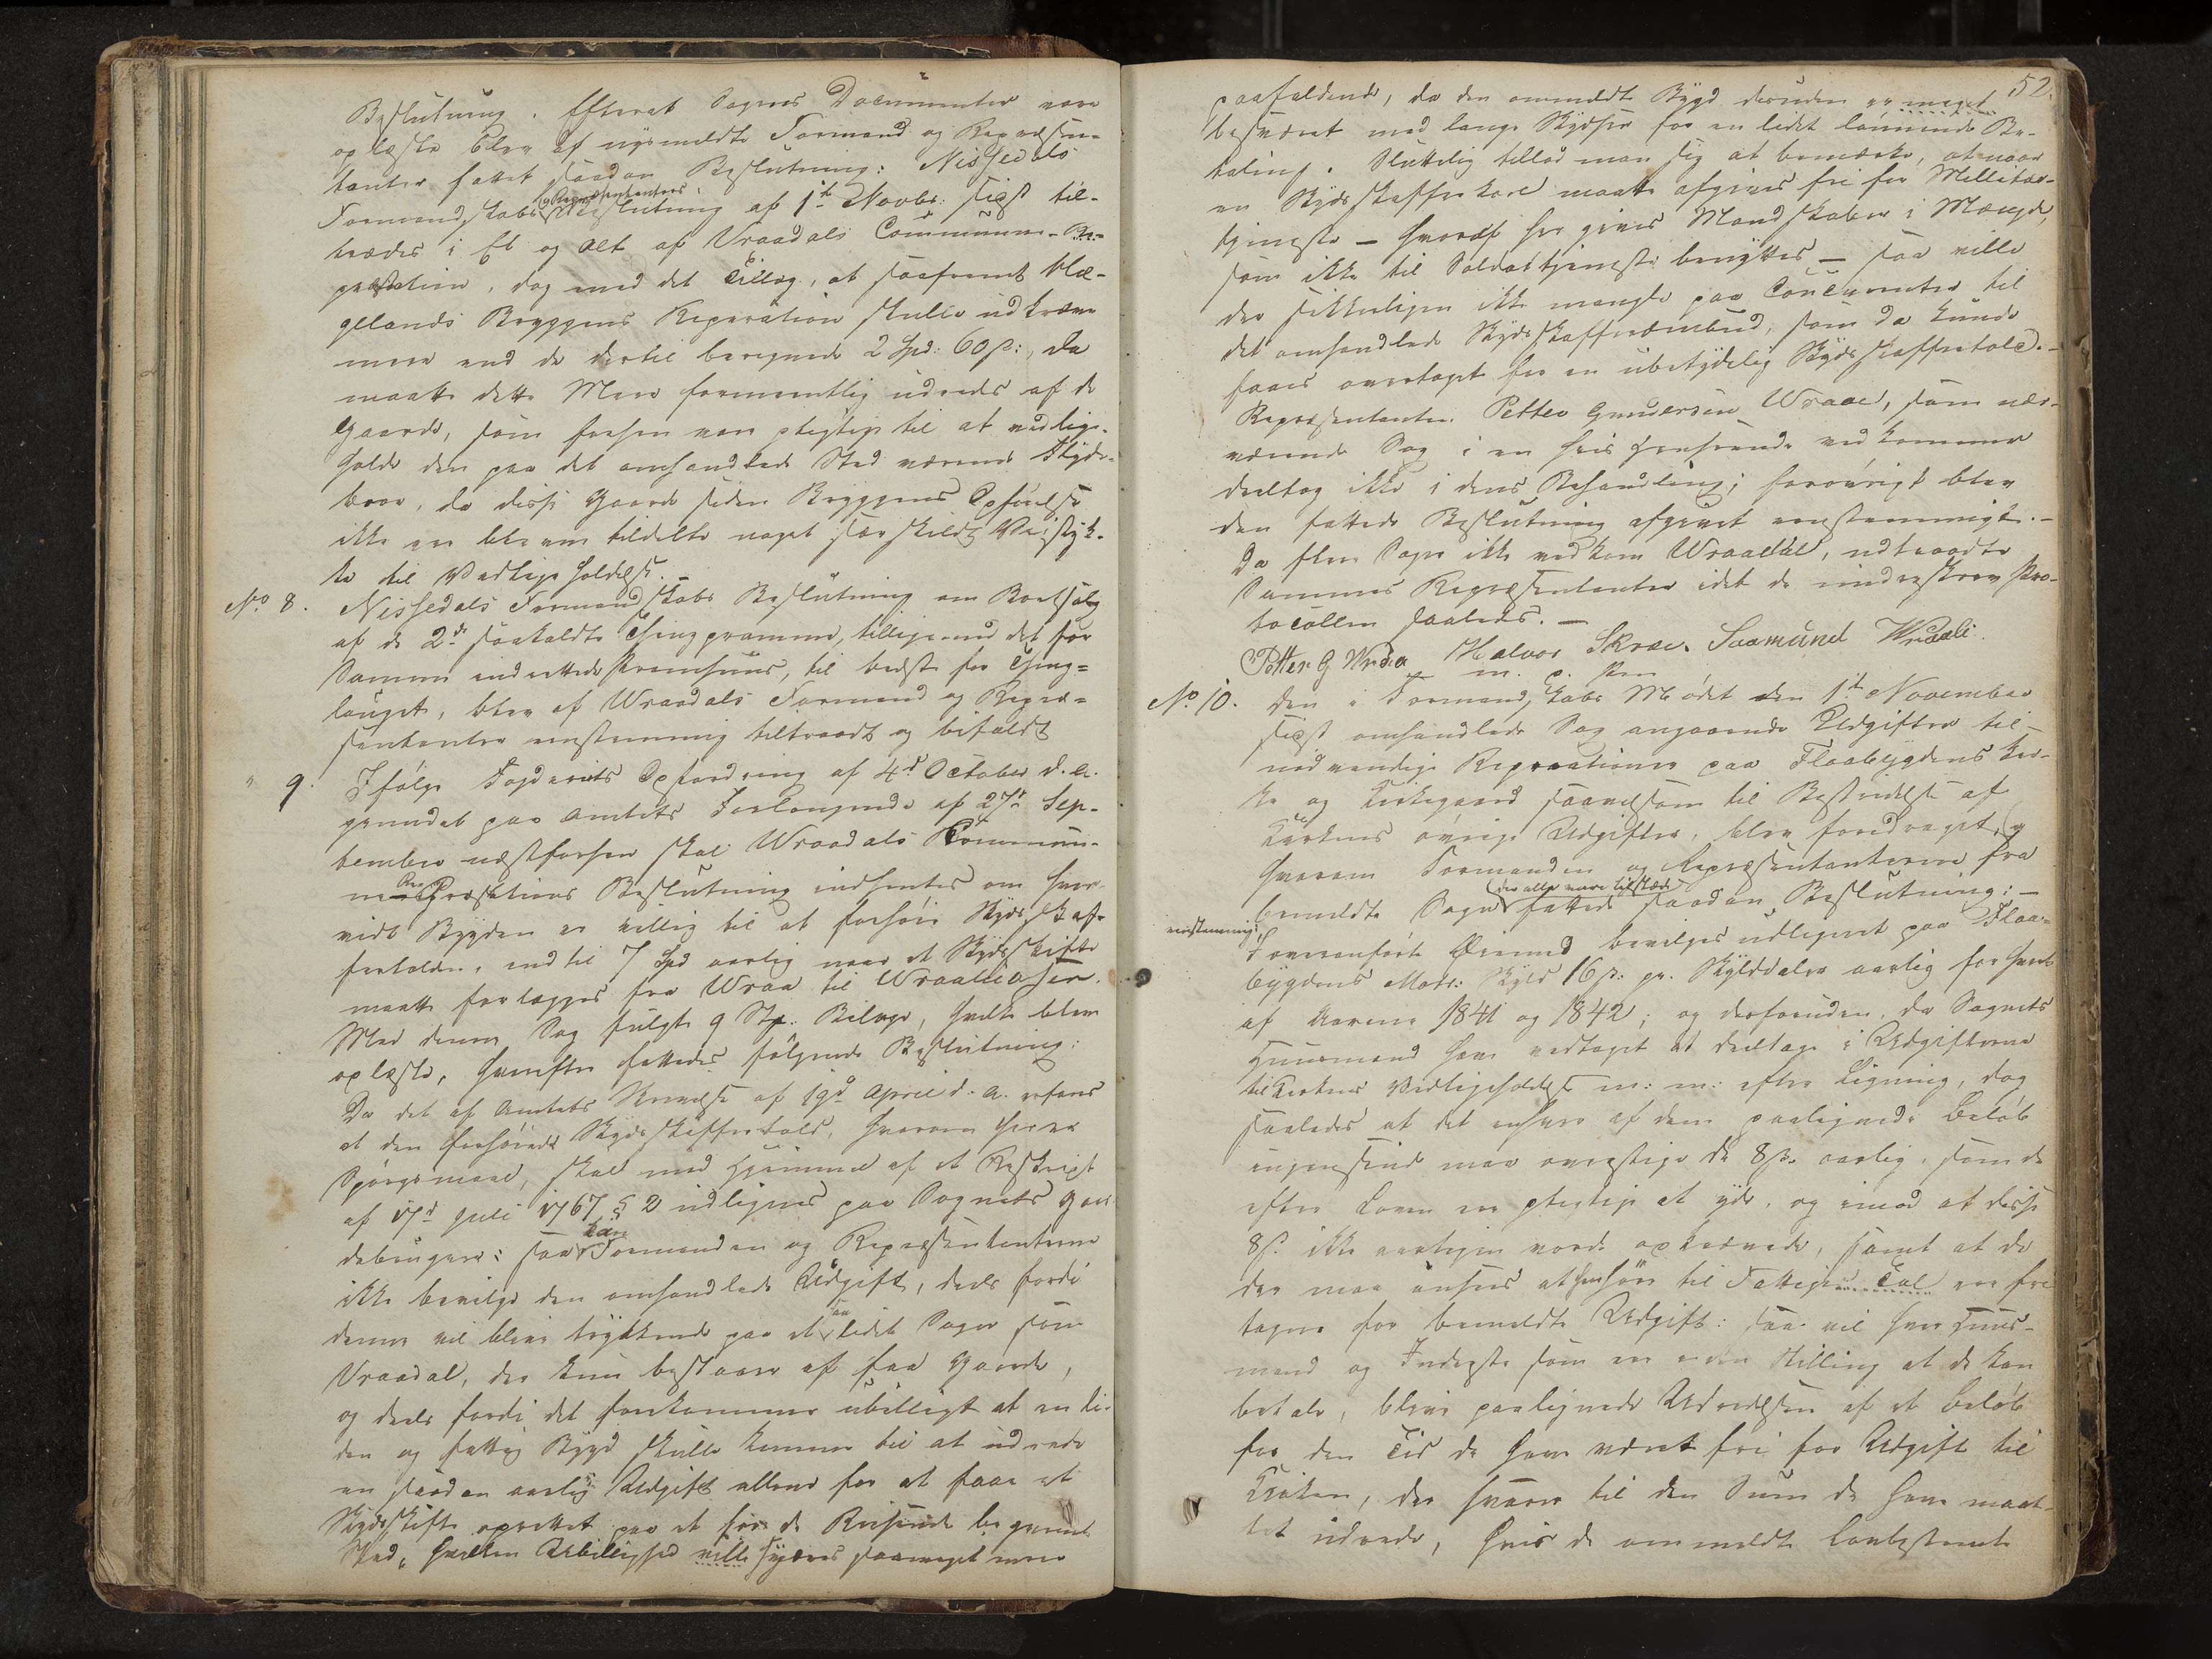 Beslutning. Efterat Sagens Documenter vare
oplæste blev af nysmeldte Formænd og Repræsen-
tanter fattet saadan Beslutning: Nissedals
Formandskabs og Repræsentanters Beslutning af 1ste Novbr. sidst til-
trædes i Et og Alt af Vraadals Commune-Re-
præsetation, dog med det Tillæg, at saafremt Klæ-
gelands Bryggens Reparation skulle udkræve
mere end de dertil beregnede 2 Spd: 60 s:, da
maatte dette Mere formeentlig udredes af de
Gaarde, som forhen vare pligtige til at vedlige-
holde den paa det omhandlede Sted værende
da disse Gaarde siden Bryggens Opførelse
ikke ere blevne tildelte noget særskildt Veistyk-
ke til Vedligeholdelse.
No 8. Nissedals Formandskabs Beslutning om Bortsalg
af de 2de saakaldte Thingpramme, tilligemed det for
Samme indrettede Pramhuus, til bedste for Thing-
lauget, blev af Wraadals Formænd og Repræ-
sentanter eenstemmig tiltraadt og bifaldt
" 9. Ifølge Fogderiets Opfordring af 4de October d. A.
grundet paa Amtets Forlangende af 27de Sep-
tember næstforhen skal Wraadals Commu-
ne Repræsetations Beslutning indhentes om hvor-
vidt Bygden er villig til at forhøie Skydsskaf-
fertolden, indtil 7 Spd aarlig naar et Skydsskifte
maatte forlægges fra Wraa til Wraaliosen.
Med denne Sag fulgte 9 Stk. Bilage, hvilke blev
oplæste, hvorefter fattedes følgende Beslutning:
Da det af Amtets Skrivelse af 19de April d. A. erfares
at den forhøiede Skydsskaffertold, hvorom her er
Spørgsmaal, skal med Hjemmel af et Reskript
af 17de Juli 1767 § 2 udlignes paa Sognets Gaar-
debrugere: saa kan Formanden og Repræsentanterne
ikke bevilge den omhandlede Udgift, deels fordi
denne vil blive trykkende paa et saa lidet Sogn som
Vraadal, der kun bestaaer af faa Gaarde,
og deels fordi det forekommer ubilligt at en li-
den og fattig Bygd skulle komme til at udrede
en saadan aarlig Udgift allene for at faae et
Skydsskifte oprettet paa et for de Reisende beqvemt
Sted, hvilken Ubillighed ville synes saameget mere
52.
paafaldende, da den ommeldte Bygd desuden er meget
besværet med lange Skydser for en lidet lønnende Be-
taling. Sluttelig tillod man sig at bemærke, at naar
en Skydsskafferkarl maatte afgives fri for Millitær-
tjeneste – hvoraf her gives Mandskaber i Mængde,
som ikke til Soldattjeneste benyttes – saa ville
der sikkerligen ikke mangle paa Concurenter til
det omhandlede Skydsskafferombud, som da kunde
faaes overtaget for en ubetydelig Skydsskaffertold.
Repræsentanten Petter Gundersen Wraae, som nær-
værende Sag i en hvis Henseende vedkommer
deeltog ikke i dens Behandling; forøvrigt blev
den fattede Beslutning afgivet eenstemmigt. –
Da flere Sager ikke vedkom Wraadal, udtraadte
Sammes Repræsentanter idet de underskrev Pro-
tocollen saaledes. –
Petter G Wraa Halvor Skree. Saamund Wraali
m. p. Pen
No 10. Den i Formandskabs Mødet den 1ste November
sidst omhandlede Sag angaaende Udgifter til
nødvendige Reparationer paa Flaabygdens Kir-
ke og Kirkegaard saavelsom til Bestridelse af
Kirkens øvrige Udgifter, blev foredraget, og
hvorom Formanden og Repræsentanterne fra
bemeldte Sogn (der alle vare tilstæde) fattede saadan Beslutning: –
eenstemmig:
Foranførte Øiemed bevilges udlignet paa Flaa-
bygdens Matr: Skyld 16 s. pr. Skylddaler aarlig for hvert
af Aarene 1841 og 1842; og desforuden, da Sognets
Huusmænd have vedtaget at deeltage i Udgifterne
til Kirkens Vedligeholdelse m: m: efter Ligning, dog
saaledes at det enhver af dem paalignede Beløb
ingensinde maa overstige de 8 s. aarlig, som de
efter Loven ere pligtige at yde, og imod at disse
8 s. ikke særligen vorde opkrævede, samt at de
der maa ansees at henhøre til Fattiges Tal ere fri-
tagne for bemeldte Udgift: saa vil hver Huus-
mand og Inderste som er i den Stilling at de kan
betale, blive paalignede Udredelsen af et Beløb
for den Tid de have været fri for Udgift til
Kirken, der svarer til den Sum de have maat-
tet udrede, hvis de ommeldte lovbestemte